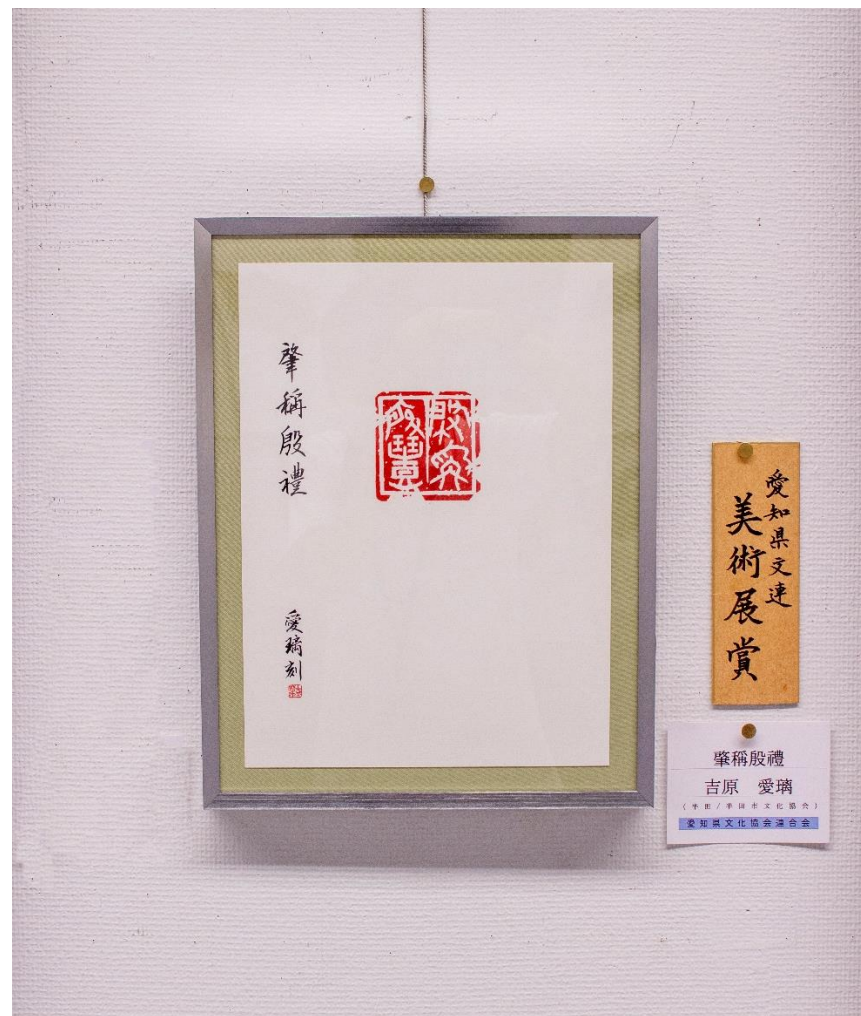 肇稱殷禮
愛璃刻
愛知県文連
美術展賞
肇稱殷禮
吉原 愛璃
(半田/半田市文化協会)
愛知県文化協会連合会